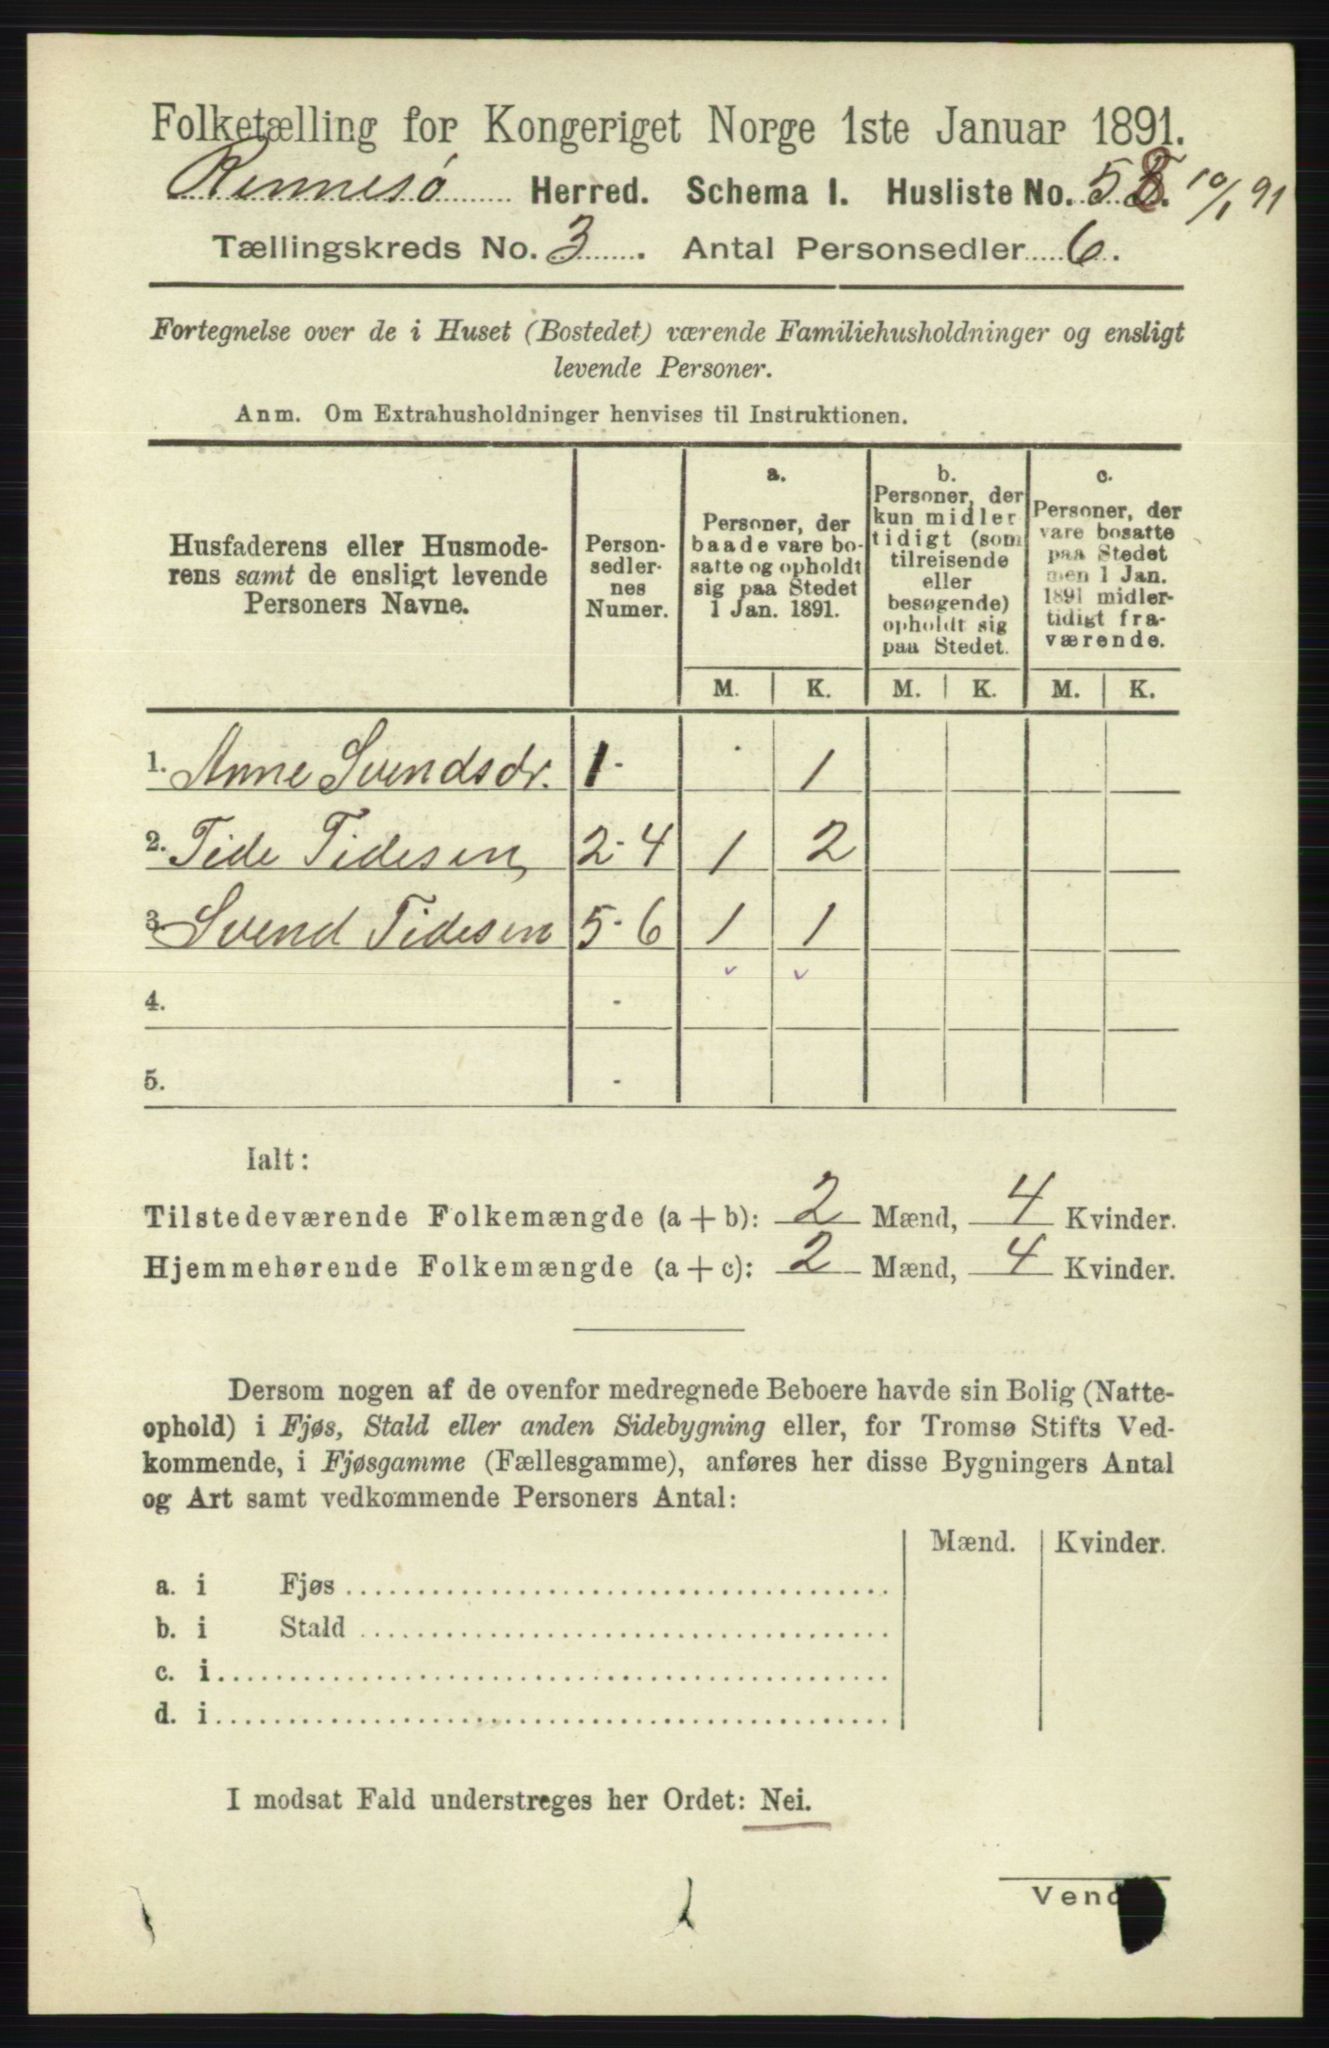 Folketælling for Kongeriget Norge 1ste Januar 1891.
Rennesø Herred. Schema I. Husliste No. 10/1 91
Tællingskreds No. 3. Antal Personsedler 6.
Fortegnelse over de i Huset (Bostedet) værende Familiehusholdninger og ensligt
levende Personer.
Anm. Om Extrahusholdninger henvises til Instruktionen.
Husfaderens eller Husmode-
rens samt de ensligt levende
Personers Navne.
Person-
sedler-
nes
Numer.
a.
Personer, der
baade vare bo-
satte og opholdt
sig paa Stedet
1 Jan. 1891.
b.
Personer, der
kun midler
tidigt (som
tilreisende
eller
besøgende)
opholdt sig
paa Stedet.
c.
Personer, der
vare bosatte
paa Stedet
men 1 Jan.
1891 midler-
tidigt fra-
værende.
M. K. M. K. M. K.
1. Anne Svendsdr. 1- 1
2. Tide Tidesen, 2-4 1 2
3. Svend Tidesen 5-6 1 1
4. -
5. -
Ialt:
Tilstedeværende Folkemængde (a + b): 2 Mænd, 4 Kvinder.
Hjemmehørende Folkemængde (a + c): 2 Mænd, 4 Kvinder.
Dersom nogen af de ovenfor medregnede Beboere havde sin Bolig (Natte-
ophold) i Fjøs, Stald eller anden Sidebygning eller, for Tromsø Stifts Ved-
kommende, i Fjøsgamme (Fællesgamme), anføres her disse Bygningers Antal
og Art samt vedkommende Personers Antal:
Mænd. Kvinder.
a. i Fjøs
b. i Stald
c. i
d. i
I modsat Fald understreges her Ordet: Nei.